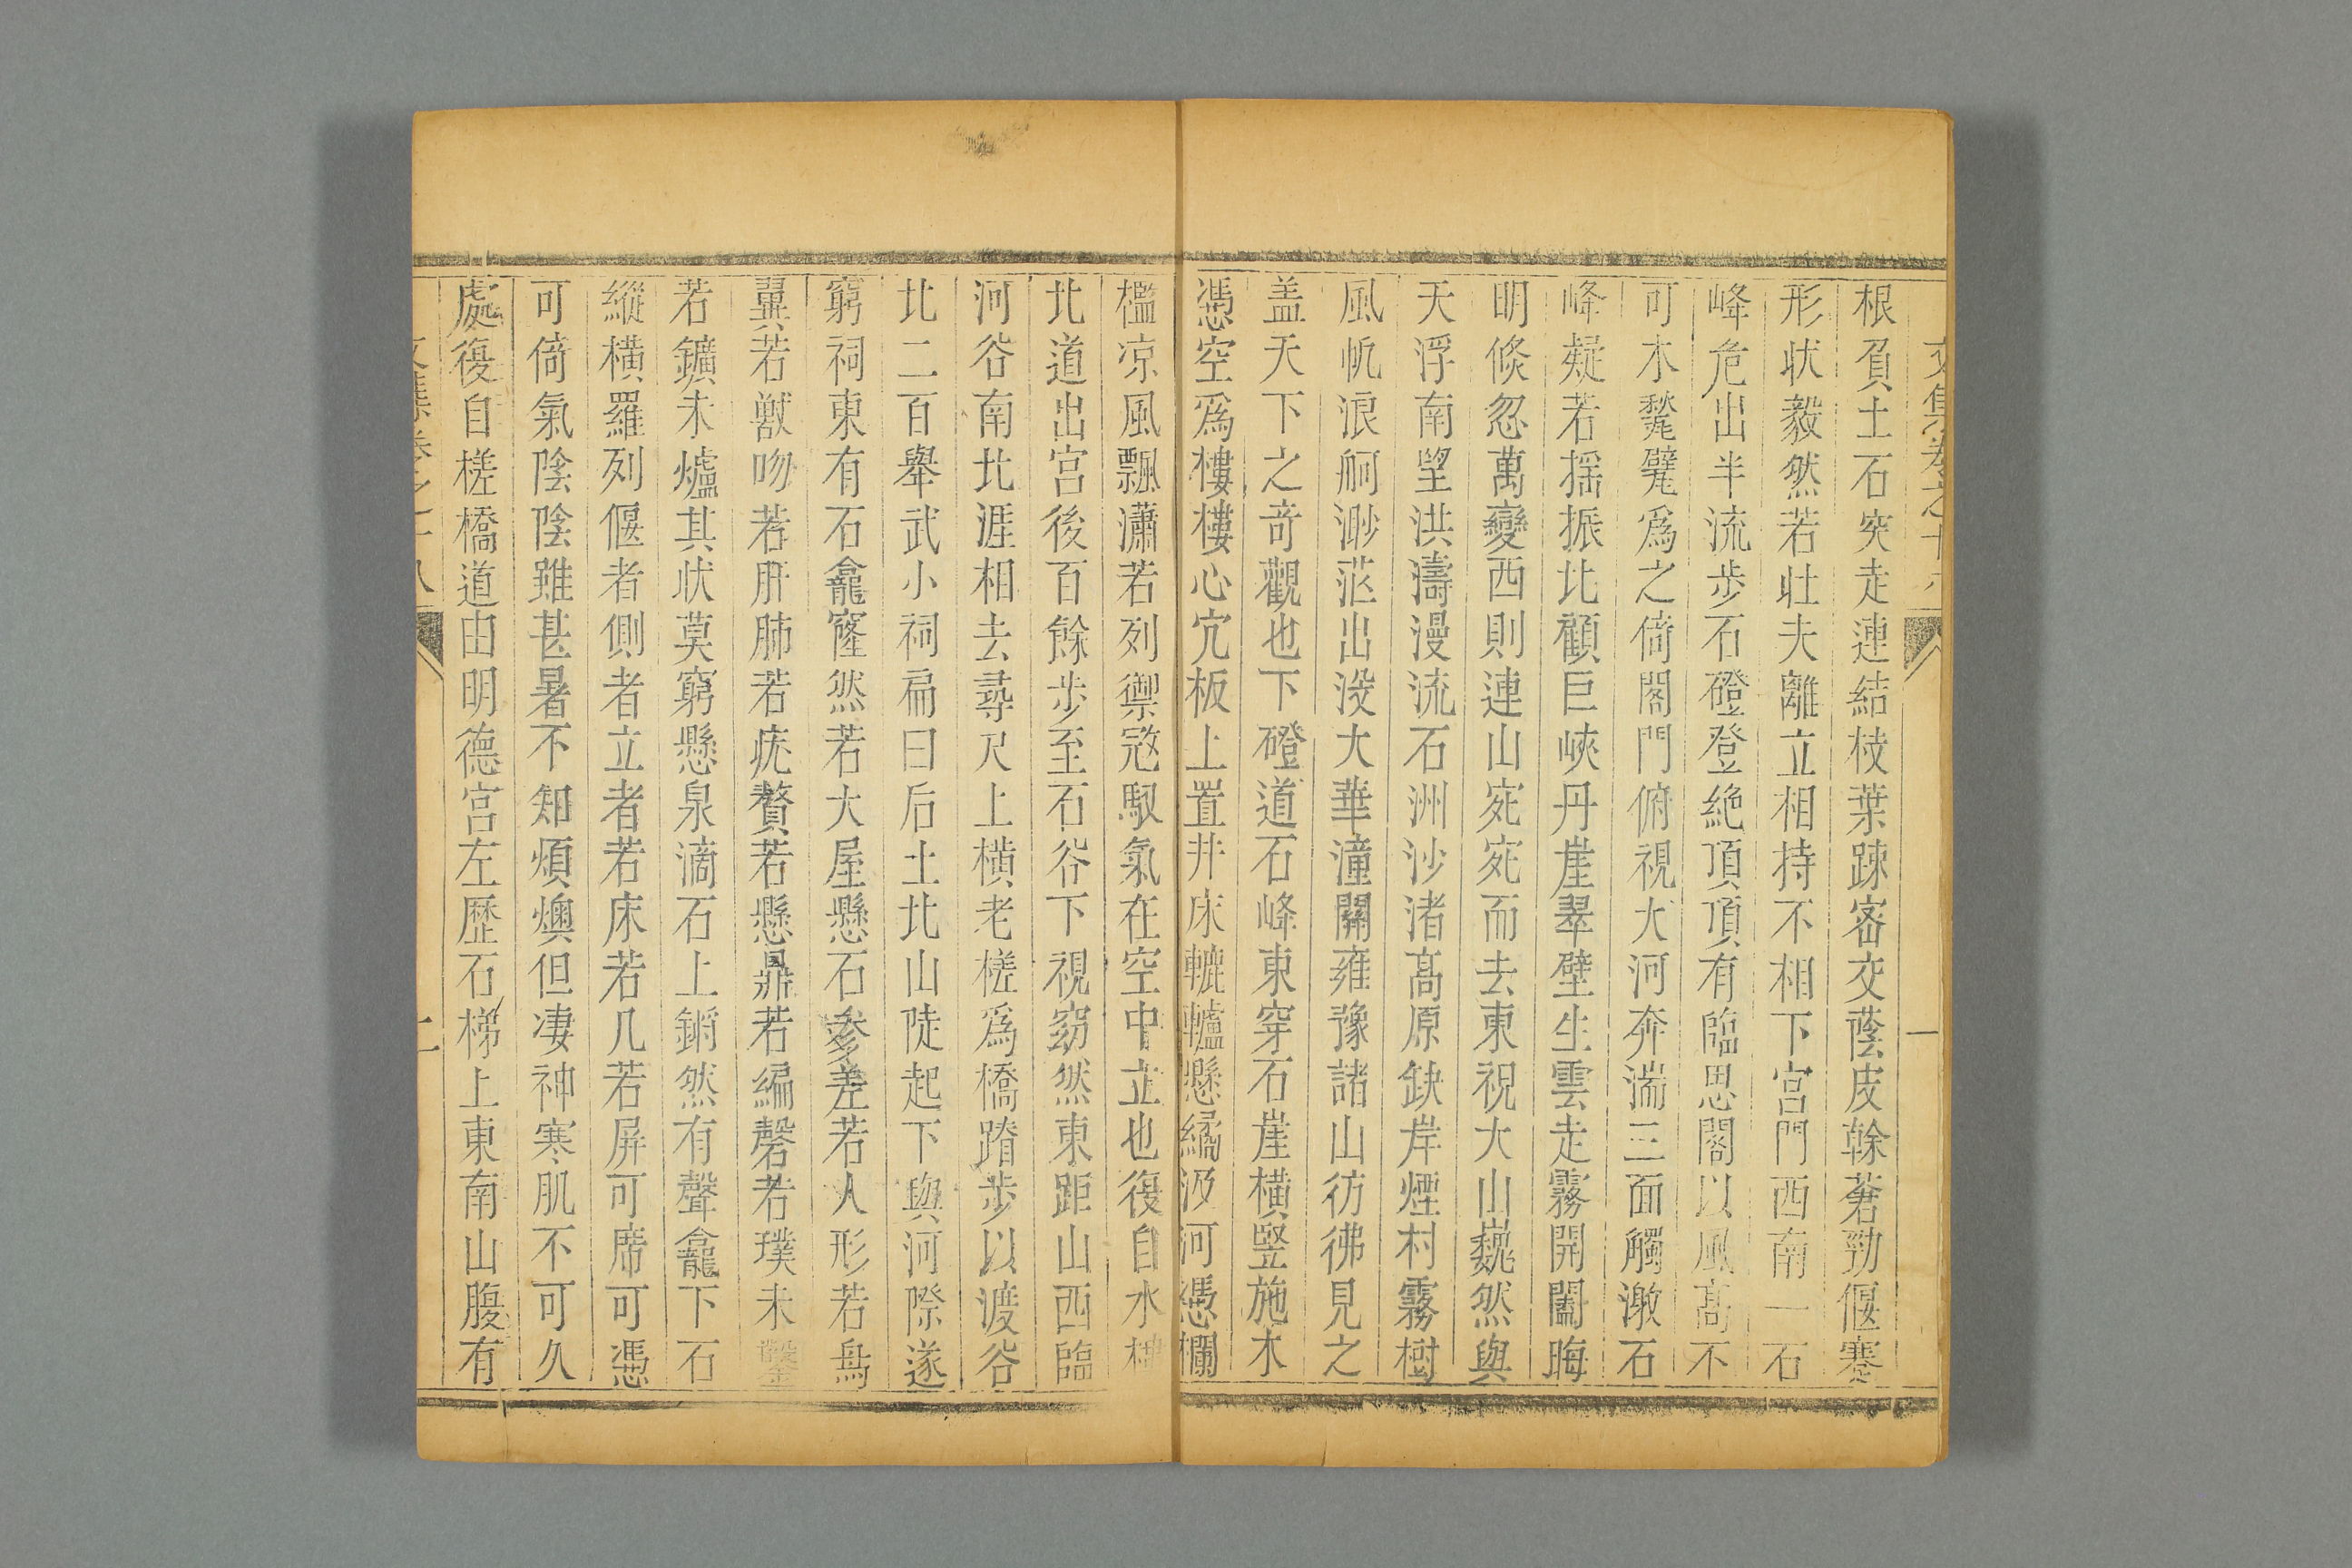 根負土石突走連結枝葉踈宻交蔭皮榦蒼勁偃蹇
形状毅然若壮夫離立相持不相下宮門西南一石
峰危出半流步石磴登絶頂頂有臨思閣以風髙不
可木甃甓爲之倚閣門俯視大河奔湍三面觸激石
峰疑若揺振北顧巨峽丹崖翠壁生雲走霧開闔晦
明倐忽萬變西則連山宛宛而去東視大山巍然與
天浮南望洪濤漫流石洲沙渚髙原缺岸煙村霧樹
風帆浪舸渺茫出没大華潼關雍豫諸山彷彿見之
盖天下之竒觀也下磴道石峰東穿石崖横竪施木
憑空爲樓樓心宂板上置井床轆轤懸繘汲河憑欄
檻凉風飄瀟若列禦冦馭氣在空中立也復自水樓
北道出宮後百餘步至石谷下視窈然東距山西臨
河谷南北涯相去尋尺上横老槎爲橋踏步以渡谷
北二百舉武小祠扁曰后土北山陡起下與河際遂
窮祠東有石龕窿然若大屋懸石參差若人形若鳥
翼若獣吻若肝肺若疣贅若懸鼎若編磬若璞未鑿
若鑛未爐其状莫窮懸泉滴石上鏘然有聲龕下石
縱横羅列偃者側者立者若床若几若屏可席可憑
可倚氣陰陰雖甚暑不知煩燠但凄神寒肌不可久
處復自槎橋道由明德宮左歴石梯上東南山腹有